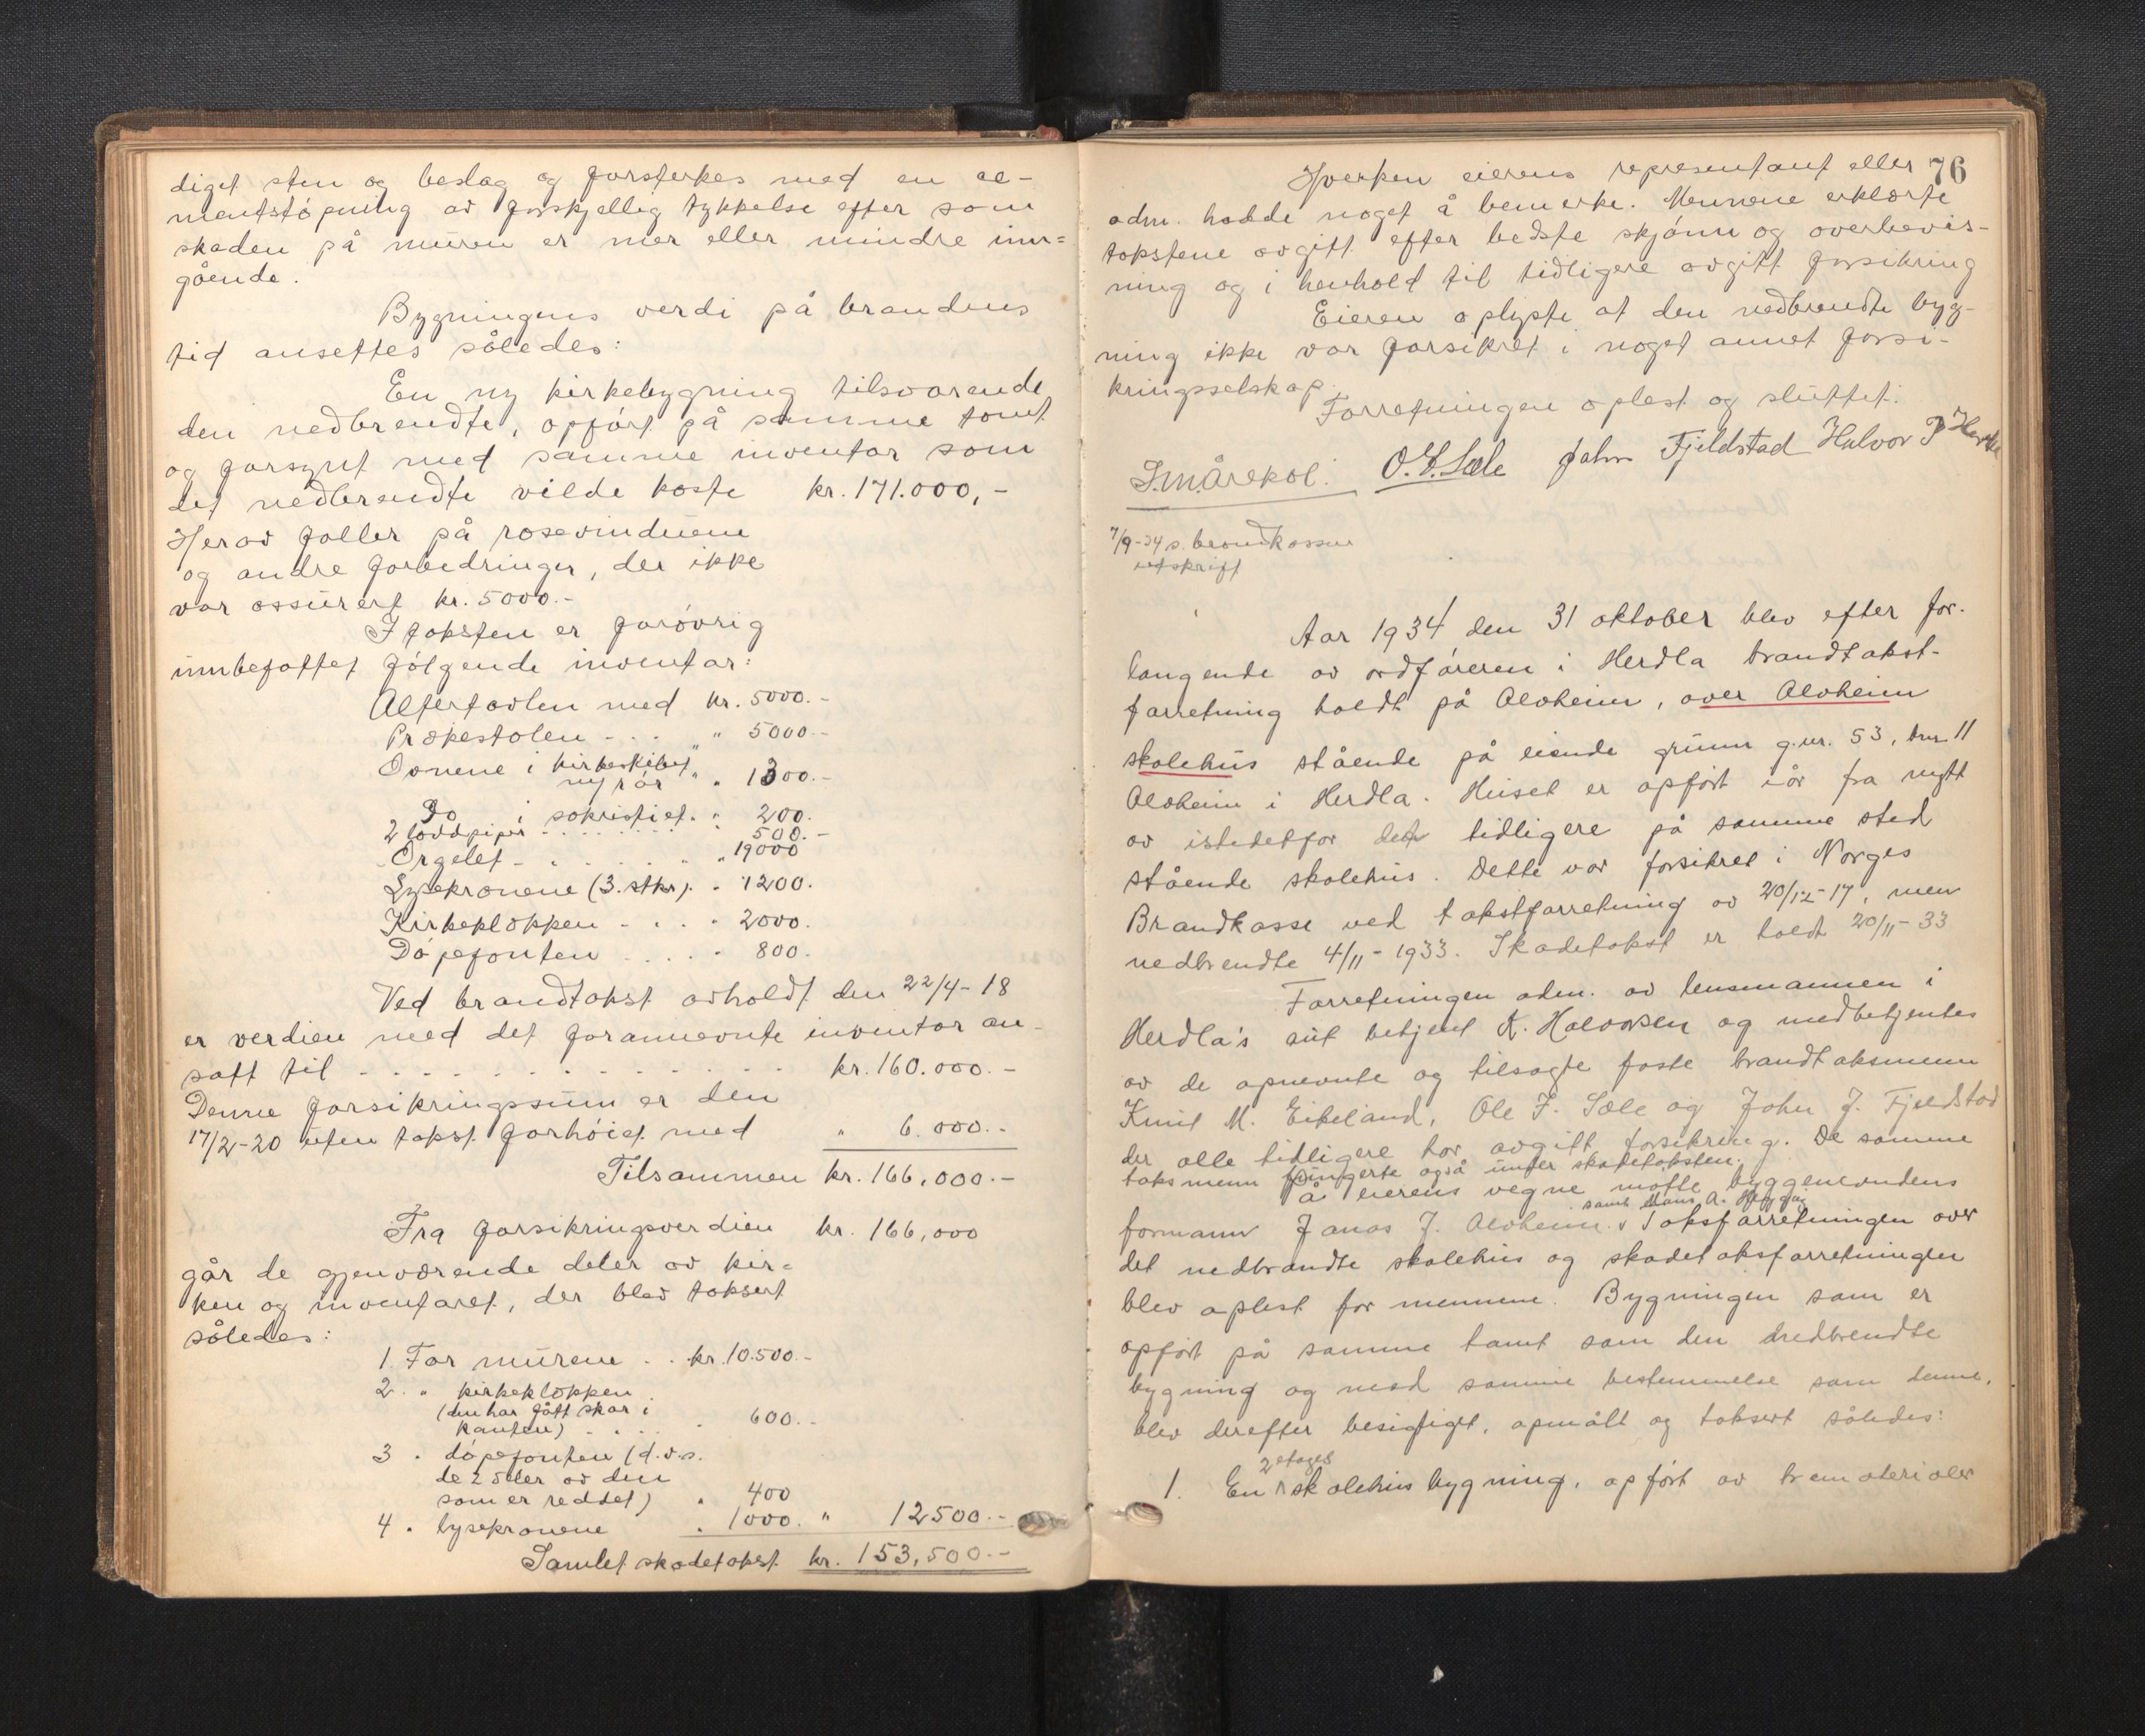 diget sten og beslag og forsterkes med en ce-
mentstöpning av forskjellig tykkelse efter som
skaden på muren er mer eller mindre inn=
gående.
Bygningens verdi på brandens
tid ansettes således:
En ny kirkebygning tilsvarende
den nedbrendte, opfört på samme tomt
og forsynt med samme inventar som
det nedbrendte vilde koste kr. 171.000,-
Herav faller på rosevinduene
og andre forbedringer, der ikke
var assurert kr. 5000.-
I taksten er forövrig
innbefattet fölgende inventar:
Altertavlen med kr. 5000.-
Prækestolen - . . " 5000.-
Ovnene i kirkeskibet
m/rör " " 1300.-
Do i sakristiet. " 200.
2 loddpiper . . . . . . 500.-
Orgelet - . . . . " " 19000
Lysekronene (3.stkr). " 1200.
Kirkeklokken - . . " 2000.
Döpefonten . . . . " 800.
Ved brandtakst avholdt den 22/4-18
er verdien med det forannevnte inventar an-
satt til - - - - - - - - kr. 160.000.-
Denne forsikringssum er den
17/2-20 uten takst forhöiet med " 6.000.-
Tilsammen kr. 166,000.-
Fra forsikringsverdien kr. 166,000
går de gjenværende deler av kir=
ken og inventaret, der blev taksert
således:
1. For murene . . kr. 10.500.-
2. " kirkeklokken
(den har fått skar i
kanten) - . . . " 600.-
3 " döpefonten (d.v.s.
de 2 deler av den
som er reddet) " 400
4 " lysekronene " 1000. " 12500.-
Samlet skadetakst kr. 153,500.-
76
Hverken eierens representant eller
adm. hadde noget å bemerke. Mennene erklærte
takstene avgitt efter bedste skjönn og overbevis-
ning og i henhold til tidligere avgitt forsikring
Eieren oplyste at den nedbrendte byg-
ning ikke var forsikret i noget annet forsi-
kringsselskap.
Forretningen oplest og sluttet.
O. E. Sæle John Fjeldstad Halvor P
7/9-34 s. brandkassen
utskrift
Aar 1934 den 31 oktober blev efter for-
langende av ordföreren i Herdla brandtakst-
forretning holdt på Alvheim, over Alvheim
skolehus stående på eiende grunn g.nr. 53, bnr 11
Alvheim i Herdla. Huset er opfört iår fra nytt
av istedetfor det tidligere på samme sted
stående skolehus. Dette var forsikret i Norges
Brandkasse ved takstforretning av 20/12-17, men
nedbrendte 4/11-1933. Skadetakst er holdt 20/11-33
Forretningen adm. av lensmannen i
Herdla's aut betjent A. Halvorsen og medbetjentes
av de opnevnte og tilsagte faste brandtaksmenn
Knut M. Eikeland, Ole E. Sæle og John J. Fjeldstad
der alle tidligere har avgitt forsikring. De samme
taksmenn fungerte også under skadetaksten.
På eierens vegne mötte byggenevndens
samt Hans A.
formann Janas J. Alvheim. v Taksforretningen over
det nedbrandte skolehus og skadetaksforretningen
blev oplest for mennene. Bygningen som er
opfört på samme tomt som den nedbrendte
bygning og med samme bestemmelse som denne,
blev derefter besigtiget, opmålt og taksert således:
2 etages
1. En skolehusbygning, opfört av trematerialer